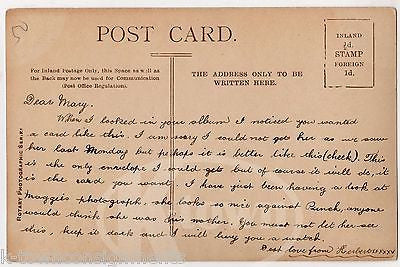 POST CARD.
INLAND
½d.
STAMP
FOREIGN
1d.
For Inland Postage Only, this Space as well as
the Back may now be used for Communication
(Post Office Regulation).
THE ADDRESS ONLY TO BE
WRITTEN HERE.
ROTARY PHOTOGRAPHIC SERIES
Dear Mary.
When I looked in your album I noticed you wanted
a card like this. I am sorry I could not get her as we saw
her last Monday but perhaps it is better like this (cheek). This
is the only envelope I could get but of course it will do, it
is the card you want. I have just been having a look at
Maggie's photograph, she looks so nice against Punch, anyone
would think she was his mother. You must not let her see
this, keep it dark and I will buy you a watch.
Best love from Herbert xxxx